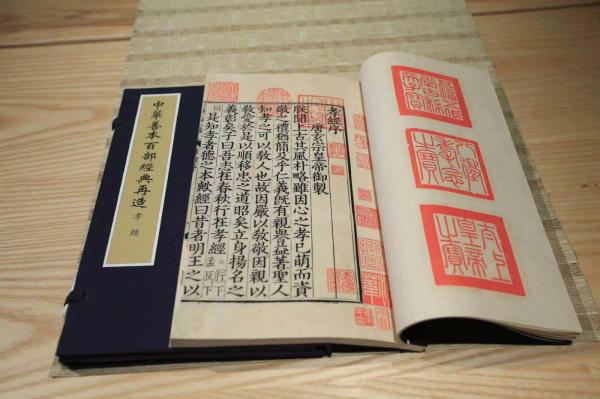 五福五代堂古稀天子寶
八徵耄念之寶
太上皇帝之寶
孝經序
唐玄宗皇帝御製
朕聞上古其風朴略雖因心之孝已萌而資
敬之禮猶簡及乎仁義既有親譽益著聖人
知孝之可以教人也故因嚴以教敬因親以
教愛於是以順移忠之道昭矣立身揚名之
義彰矣子曰吾志在春秋行在孝經。行下孟反下
同是知孝者德之本歟經曰昔者明王之以
中華善本百部經典再造
孝經